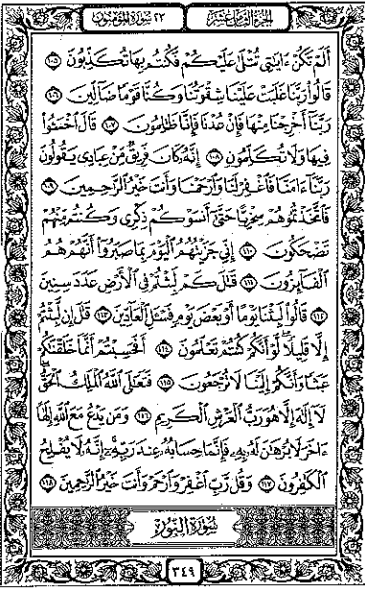 الجزء الثامن عشر
٢٣ سورة المؤمنون
أَلَمْ تَكُنْ ءَايَٰتِى تُتْلَىٰ عَلَيْكُمْ فَكُنتُم بِهَا تُكَذِّبُونَ ١٠٥
قَالُوا۟ رَبَّنَا غَلَبَتْ عَلَيْنَا شِقْوَتُنَا وَكُنَّا قَوْمًا ضَآلِّينَ ١٠٦
رَبَّنَآ أَخْرِجْنَا مِنْهَا فَإِنْ عُدْنَا فَإِنَّا ظَٰلِمُونَ ١٠٧ قَالَ ٱخْسَـُٔوا۟
فِيهَا وَلَا تُكَلِّمُونِ ١٠٨ إِنَّهُۥ كَانَ فَرِيقٌ مِّنْ عِبَادِى يَقُولُونَ
رَبَّنَآ ءَامَنَّا فَٱغْفِرْ لَنَا وَٱرْحَمْنَا وَأَنتَ خَيْرُ ٱلرَّٰحِمِينَ ١٠٩
فَٱتَّخَذْتُمُوهُمْ سِخْرِيًّا حَتَّىٰٓ أَنسَوْكُمْ ذِكْرِى وَكُنتُم مِّنْهُمْ
تَضْحَكُونَ ١١٠ إِنِّى جَزَيْتُهُمُ ٱلْيَوْمَ بِمَا صَبَرُوٓا۟ أَنَّهُمْ هُمُ
ٱلْفَآئِزُونَ ١١١ قَٰلَ كَمْ لَبِثْتُمْ فِى ٱلْأَرْضِ عَدَدَ سِنِينَ
١١٢ قَالُوا۟ لَبِثْنَا يَوْمًا أَوْ بَعْضَ يَوْمٍ فَسْـَٔلِ ٱلْعَآدِّينَ ١١٣ قَٰلَ إِن لَّبِثْتُمْ
إِلَّا قَلِيلًا لَّوْ أَنَّكُمْ كُنتُمْ تَعْلَمُونَ ١١٤ أَفَحَسِبْتُمْ أَنَّمَا خَلَقْنَٰكُمْ
عَبَثًا وَأَنَّكُمْ إِلَيْنَا لَا تُرْجَعُونَ ١١٥ فَتَعَٰلَى ٱللَّهُ ٱلْمَلِكُ ٱلْحَقُّ
لَآ إِلَٰهَ إِلَّا هُوَ رَبُّ ٱلْعَرْشِ ٱلْكَرِيمِ ١١٦ وَمَن يَدْعُ مَعَ ٱللَّهِ إِلَٰهًا
ءَاخَرَ لَا بُرْهَٰنَ لَهُۥ بِهِۦ فَإِنَّمَا حِسَابُهُۥ عِندَ رَبِّهِۦٓ إِنَّهُۥ لَا يُفْلِحُ
ٱلْكَٰفِرُونَ ١١٧ وَقُل رَّبِّ ٱغْفِرْ وَٱرْحَمْ وَأَنتَ خَيْرُ ٱلرَّٰحِمِينَ ١١٨
سُورَةُ النُّورِ
٣٤٩